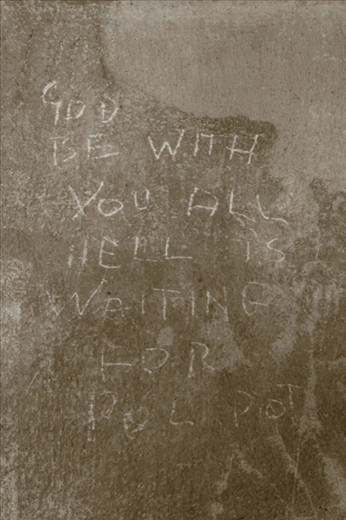 GOD
BE WITH
YOU ALL
HELL IS
WAITING
FOR
POL POT